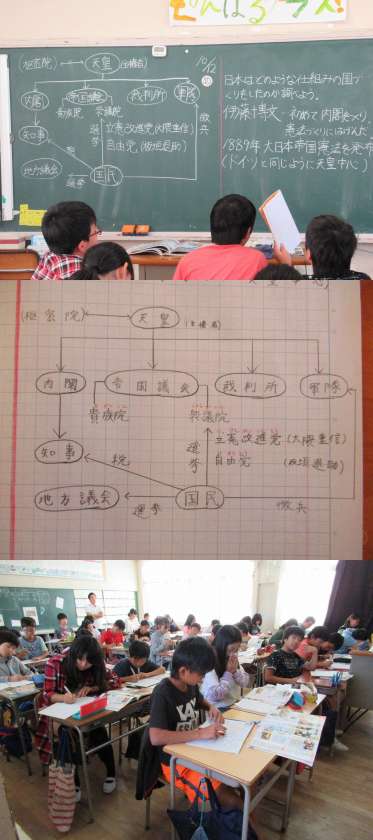 がんばるクラス!
(枢密院) 天皇 (主権者)
10/12
内閣 帝国議会 裁判所 軍隊
貴族院 衆議院
選挙
立憲改進党(大隈重信)
自由党(板垣退助)
徴兵
知事
税
地方議会 選挙 国民
日本はどのような仕組みの国づ
くりをしたのか調べよう。
伊藤博文・初めて内閣をつくり、
憲法づくりにはげんだ。
1889年大日本帝国憲法を発布
(ドイツと同じように天皇中心)
(枢密院) 天皇 (主権者)
内閣 帝国議会 裁判所 軍隊
貴族院 衆議院
選挙
立憲改進党(大隈重信)
自由党(板垣退助)
知事 税
国民
地方議会 選挙 徴兵